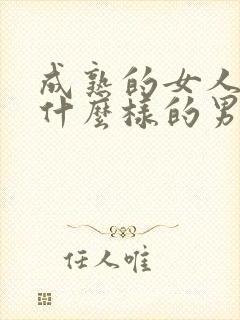 成熟的女人
什麼樣的男
任人唯